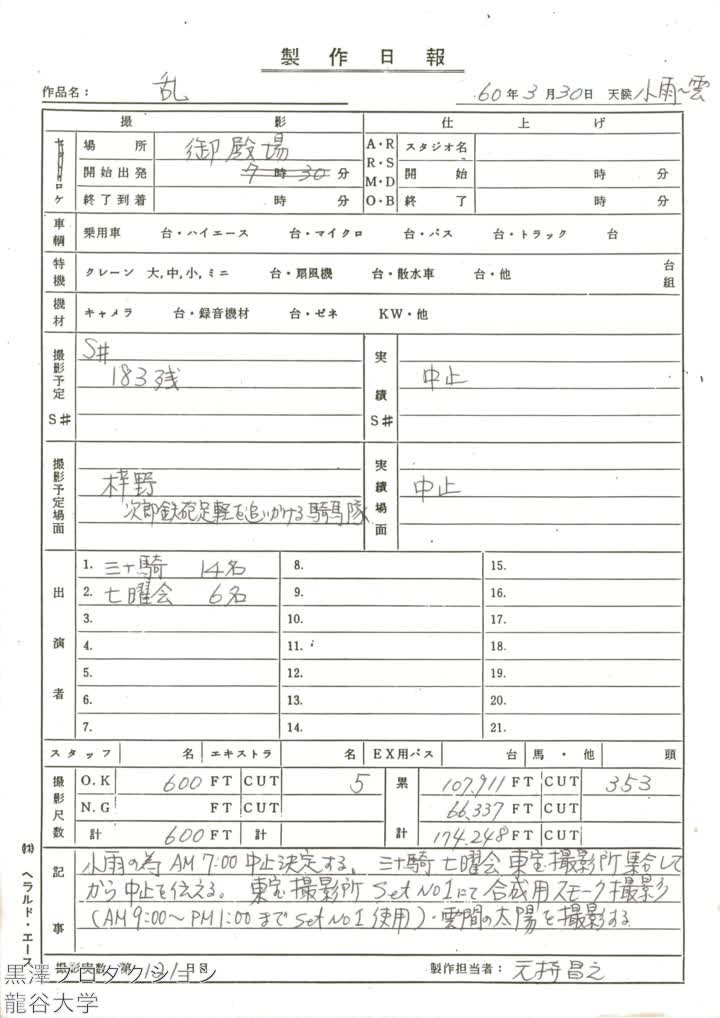 製作日報
作品名: 乱 60年3月30日 天候 小雨〜雲
撮影 仕上げ
ロケ 場所 御殿場 A・R R・S M・D O・B スタジオ名
開始出発 7時30分 開始 時 分
終了到着 時 分 終了 時 分
車輌 乗用車 台・ハイエース 台・マイクロ 台・バス 台・トラック 台
特機 クレーン 大,中,小,ミニ 台・扇風機 台・散水車 台・他 台組
機材 キャメラ 台・録音機材 台・ゼネ KW・他
撮影予定S# S# 実績S#
183残 中止
撮影予定場面 梓野 実績場面 中止
次郎鉄砲足軽を追いかける騎馬隊
出演者 1. 三十騎 14名 8. 15.
2. 七曜会 6名 9. 16.
3. 10. 17.
4. 11. 18.
5. 12. 19.
6. 13. 20.
7. 14. 21.
スタッフ 名 エキストラ 名 EX用バス 台 馬・他 頭
撮影尺数 O.K 600 FT CUT 5 累計 107,911 FT CUT 353
N.G FT CUT 66,337 FT CUT
計 600 FT 計 174,248 FT CUT
記事 小雨の為AM7:00中止決定する、三十騎七曜会東宝撮影所集合して
から中止を伝える。東宝撮影所 Set No1にて合成用スモーク撮影
(AM9:00〜PM1:00までSet No1使用)・雲間の太陽を撮影する
撮影日数 第121日目 製作担当者: 元持昌之
㈱ヘラルド・エース
黒澤プロダクション
龍谷大学